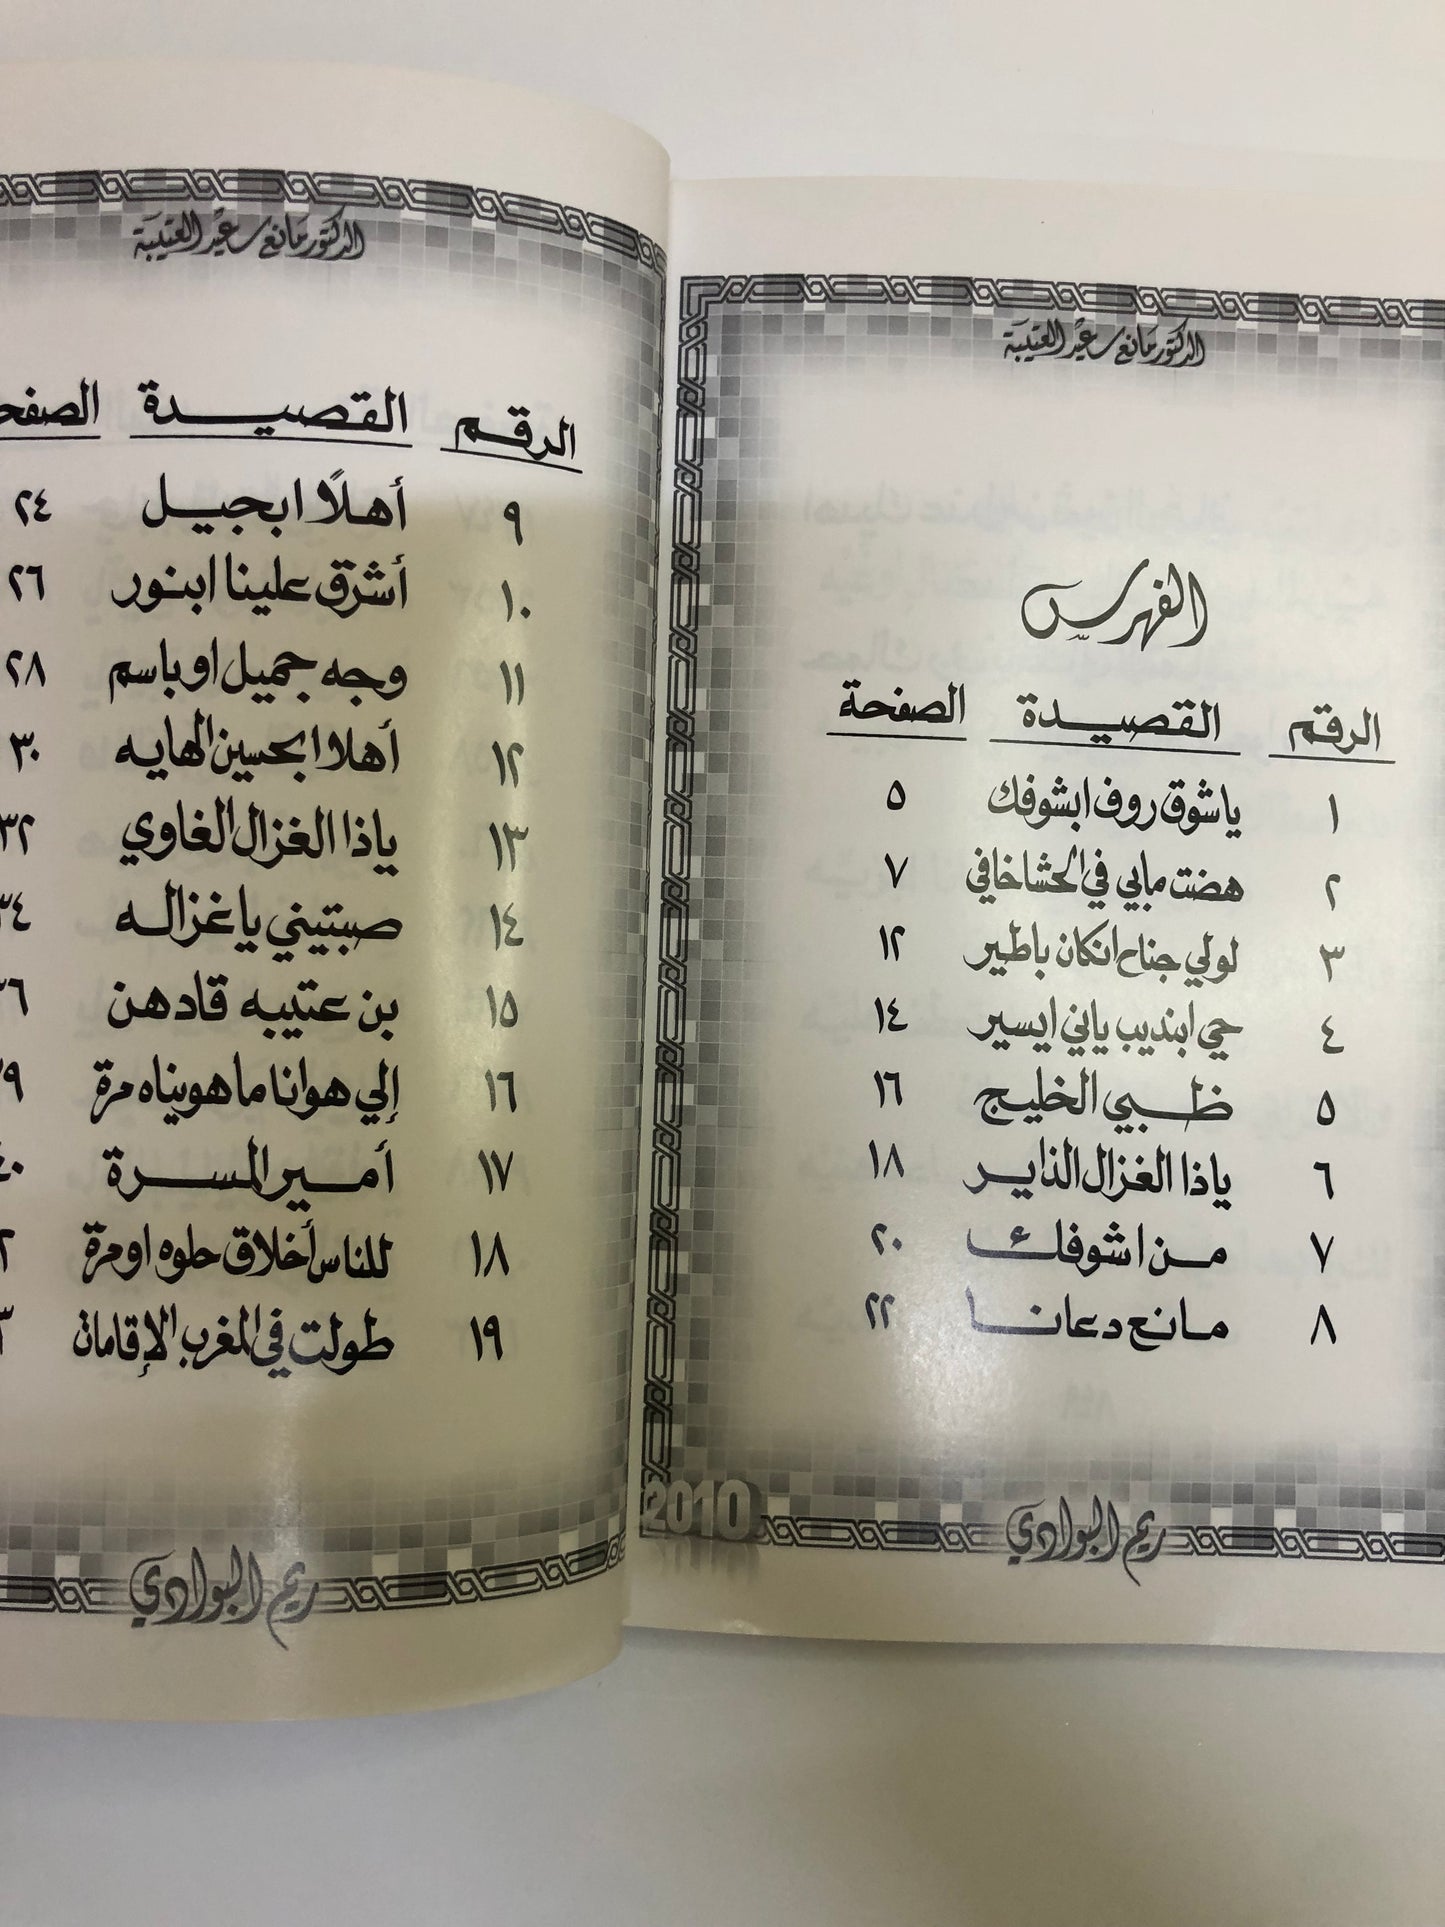 الدكتور مانع سعيد العتيبة
الفهرس
الرقم القصيدة الصفحة
١ ياشوق روف ابشوفك ٥
٢ هضت مابي في الحشا خافي ٧
٣ لولي جناح انكان باطير ١٢
٤ حي ابنديب ياني ايسير ١٤
٥ ظبي الخليج ١٦
٦ ياذا الغزال الذاير ١٨
٧ من اشوفك ٢٠
٨ مانع دعانا ٢٢
2010
ريم البوادي
الدكتور مانع سعيد العتيبة
الرقم القصيدة
٩ أهلًا ابجيل ٢٤
١٠ أشرق علينا ابنور ٢٦
١١ وجه جميل او باسم ٢٨
١٢ أهلا ابحسين الهايه ٣٠
١٣ ياذا الغزال الغاوي ٣٢
١٤ صبتيني ياغزاله ٣٤
١٥ بن عتيبه قادهن
١٦ إلي هوانا ما هويناه مرة
١٧ أمير المسرة
١٨ للناس أخلاق حلوه او مرة
١٩ طولت في المغرب الإقامات
ريم البوادي